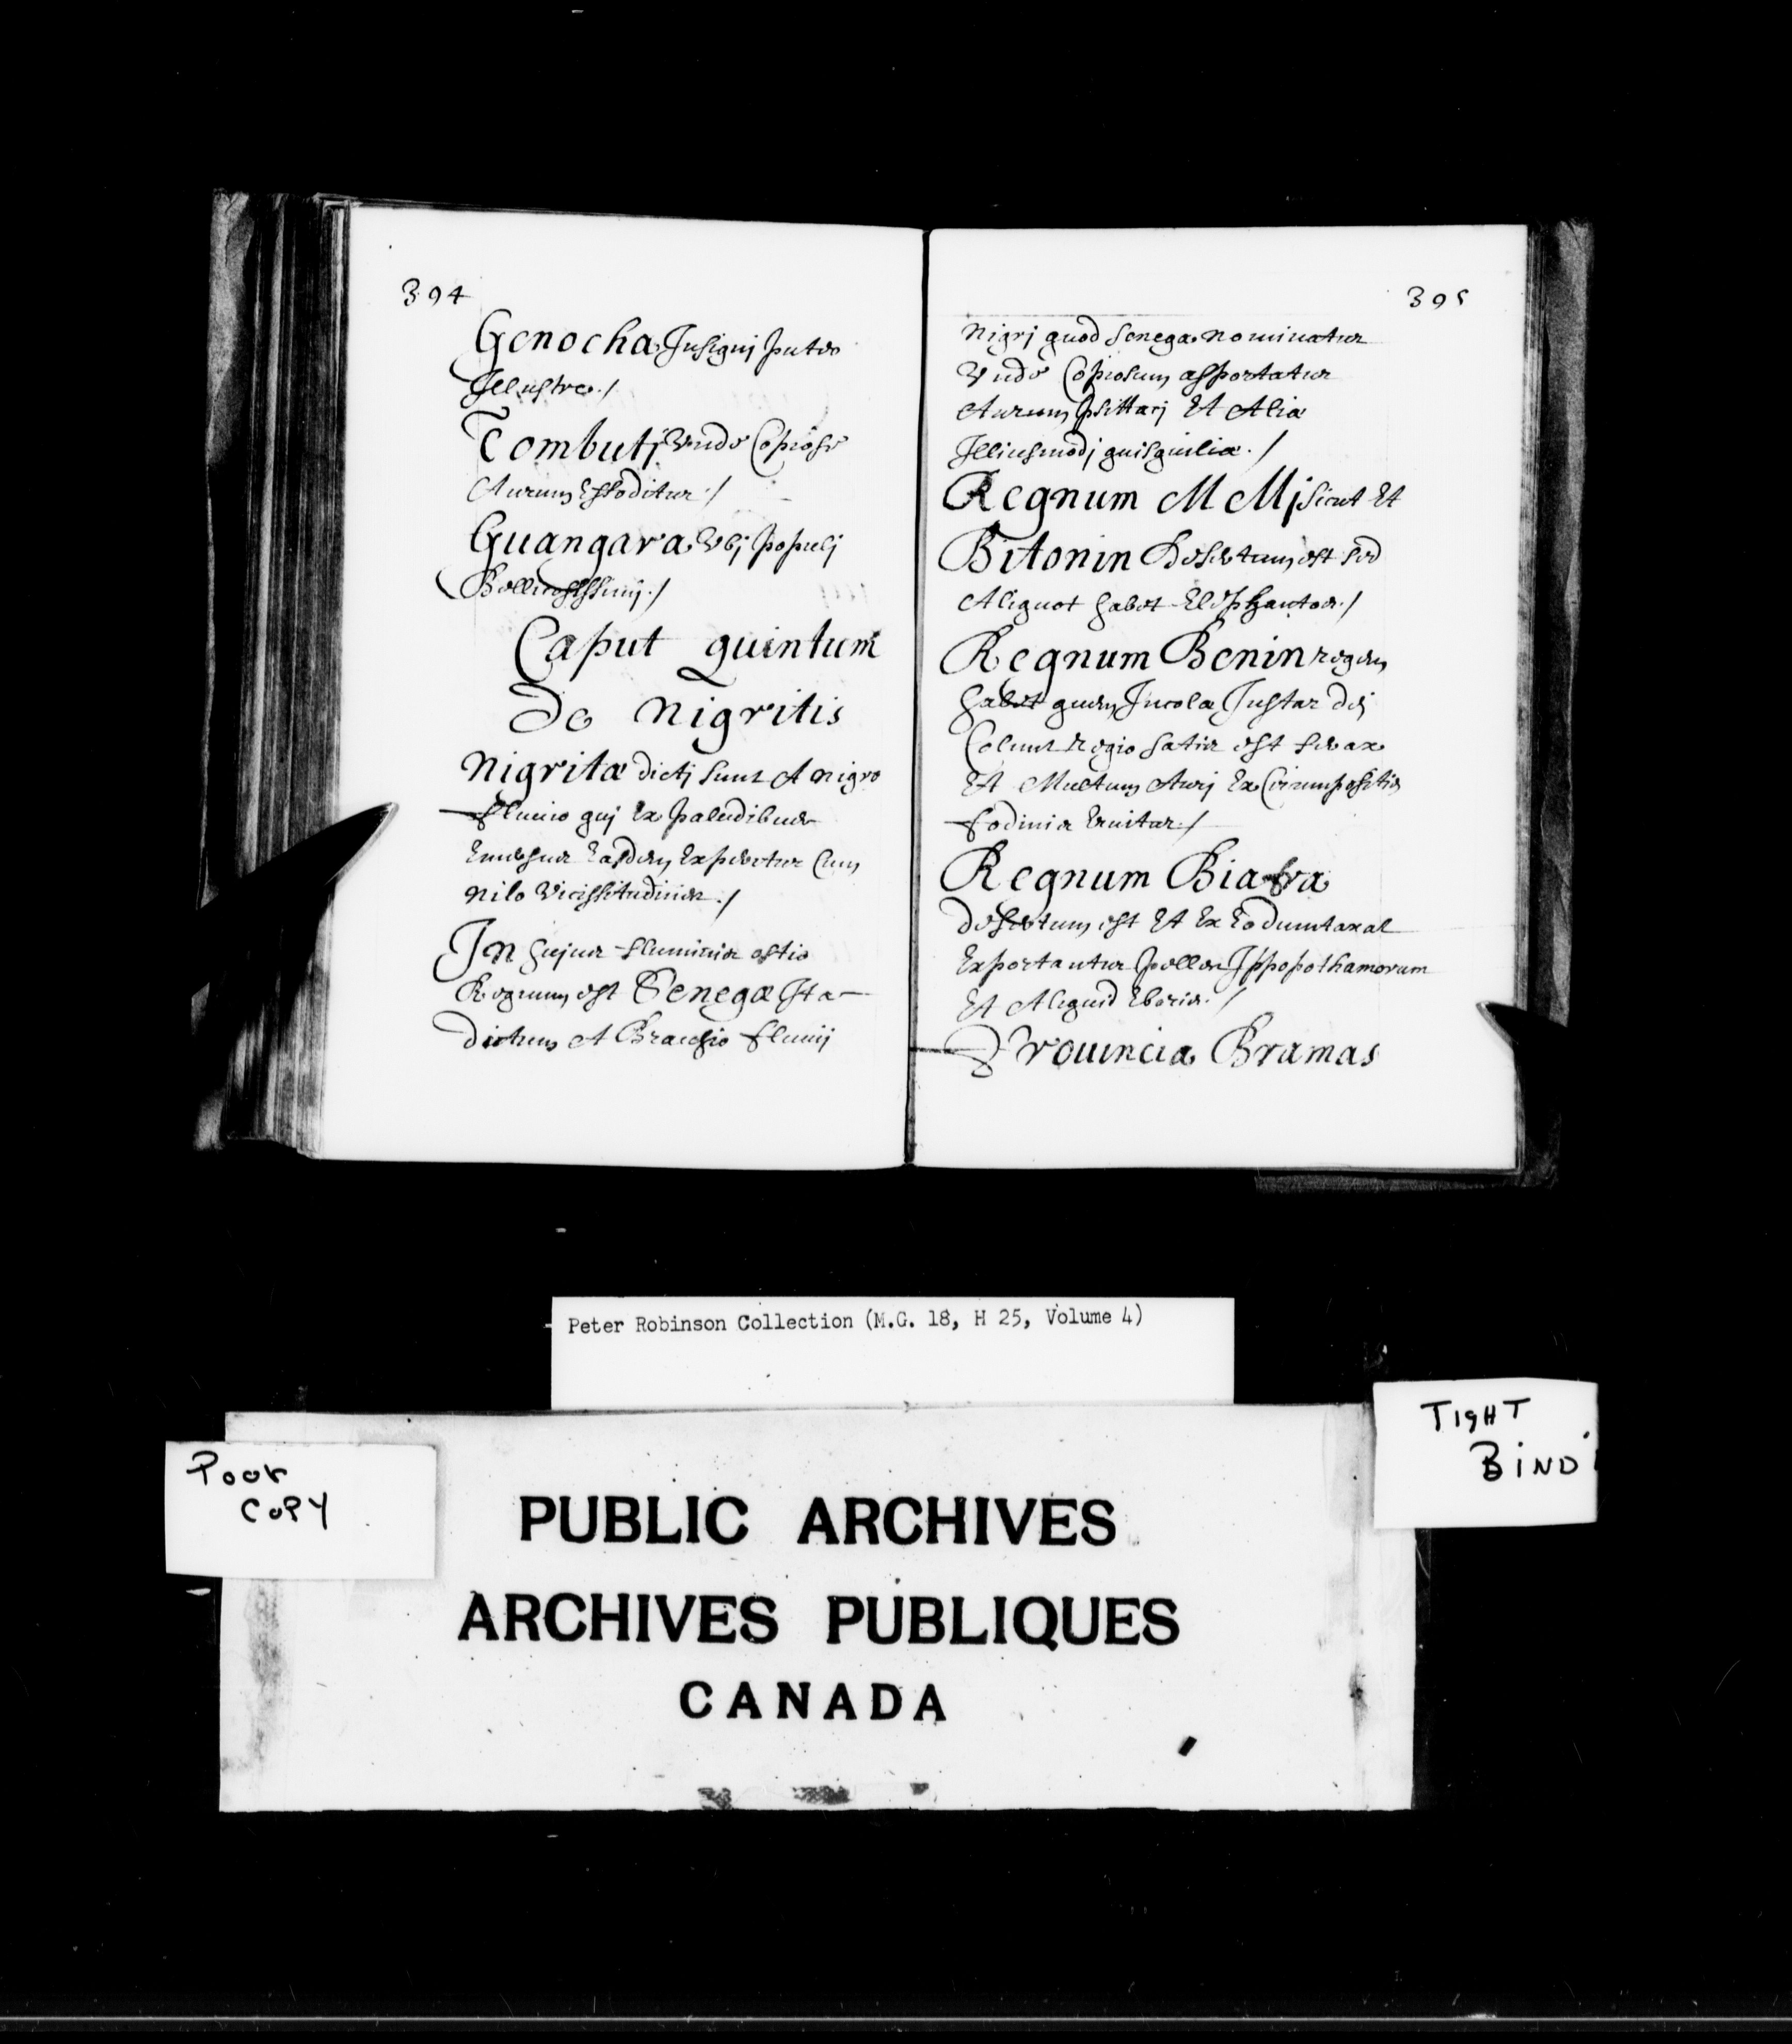 394
Genocha Insignj puteo
Illustre ./
Tombutj Vnde Copiose
Aurum Effoditur ./
Guangara Vbj populj
Bellicosissimj ./
Caput quintum
De Nigritis
Nigritæ dictj sunt A nigro
fluuio quj Ex paludibus
Emersus Easdem Expertur Cum
Nilo Vicissitudines ./
In hujus fluminis ostio
Regnum est Senegæ Ita
Dictum A Brachio fluuij
395
Nigrj quod Senega nominatur
Vnde Copiosum asportatur
Aurum psittacj Et Alia
Illiusmodj quisquiliæ ./
Regnum M Mlj sicut Et
Bitonin Desertum est sed
Aliquot habet Elephantos ./
Regnum Benin regem
habet quem Incolæ Instar dej
Colunt regio satis est ferax
Et Multum Aurj Ex Circumpositis
fodinis Eruitur ./
Regnum Biafra
desertum est Et Ex Eo dumtaxat
Exportantur pelles Ippopothamorum
Et Aliquid Eboris ./
Prouincia Bramas
Peter Robinson Collection (M.G. 18, H 25, Volume 4)
Poor
Copy
Tight
Bind
PUBLIC ARCHIVES
ARCHIVES PUBLIQUES
CANADA